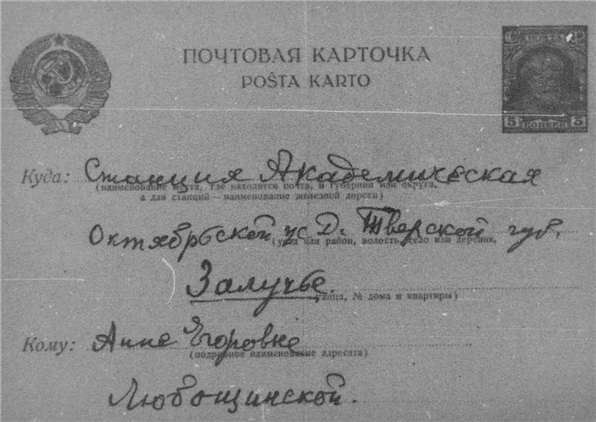 ПОЧТОВАЯ КАРТОЧКА
POŜTA KARTO
ПОЧТА
5 КОПЕЕК 5
Куда: Станция Академическая
(наименование места, где находится почта, и губернии или округа,
а для станций—наименование железной дороги)
Октябрьской ж. Д. Тверской губ.
(уезд или район, волость, село или деревня,
Залучье.
улица, № дома и квартиры)
Кому: Анне Егоровне
(подробное наименование адресата)
Любощинской.